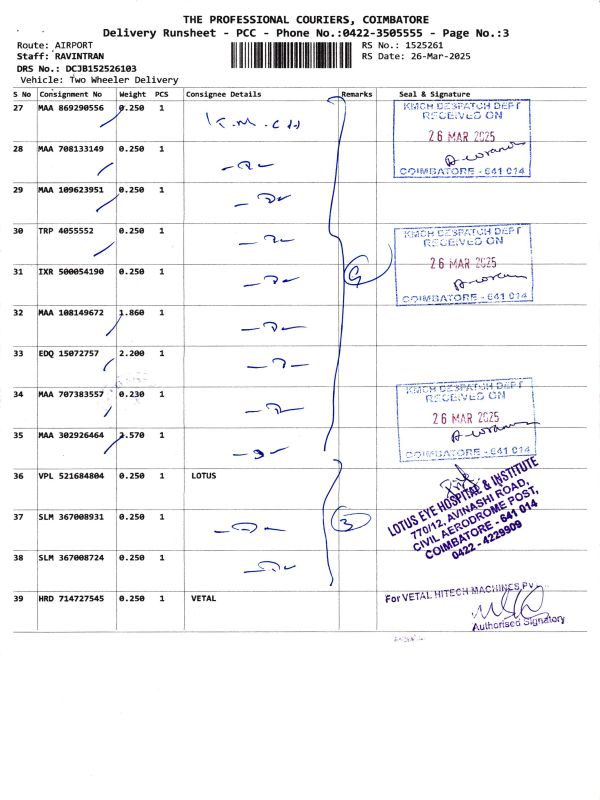 THE PROFESSIONAL COURIERS, COIMBATORE
Delivery Runsheet - PCC - Phone No.:0422-3505555 - Page No.:3
Route: AIRPORT
RS No.: 1525261
Staff: RAVINTRAN
RS Date: 26-Mar-2025
DRS No.: DCJB152526103
Vehicle: Two Wheeler Delivery
S No Consignment No Weight PCS Consignee Details Remarks Seal & Signature
27 MAA 869290556 0.250 1 K.M.CH
KMCH DESPATCH DEPT
RECEIVED ON
26 MAR 2025
COIMBATORE - 641 014
28 MAA 708133149 0.250 1
29 MAA 109623951 0.250 1
30 TRP 4055552 0.250 1
KMCH DESPATCH DEPT
RECEIVED ON
26 MAR 2025
COIMBATORE - 641 014
31 IXR 500054190 0.250 1 9
32 MAA 108149672 1.860 1
33 EDQ 15072757 2.200 1
34 MAA 707383557 0.230 1
KMCH DESPATCH DEPT
RECEIVED ON
26 MAR 2025
COIMBATORE - 641 014
35 MAA 302926464 2.570 1
36 VPL 521684804 0.250 1 LOTUS
LOTUS EYE HOSPITAL & INSTITUTE
770/12, AVINASHI ROAD,
CIVIL AERODROME POST,
COIMBATORE - 641 014
0422 - 4229909
37 SLM 367008931 0.250 1 3
38 SLM 367008724 0.250 1
39 HRD 714727545 0.250 1 VETAL
For VETAL HITECH MACHINES
Authorised Signatory